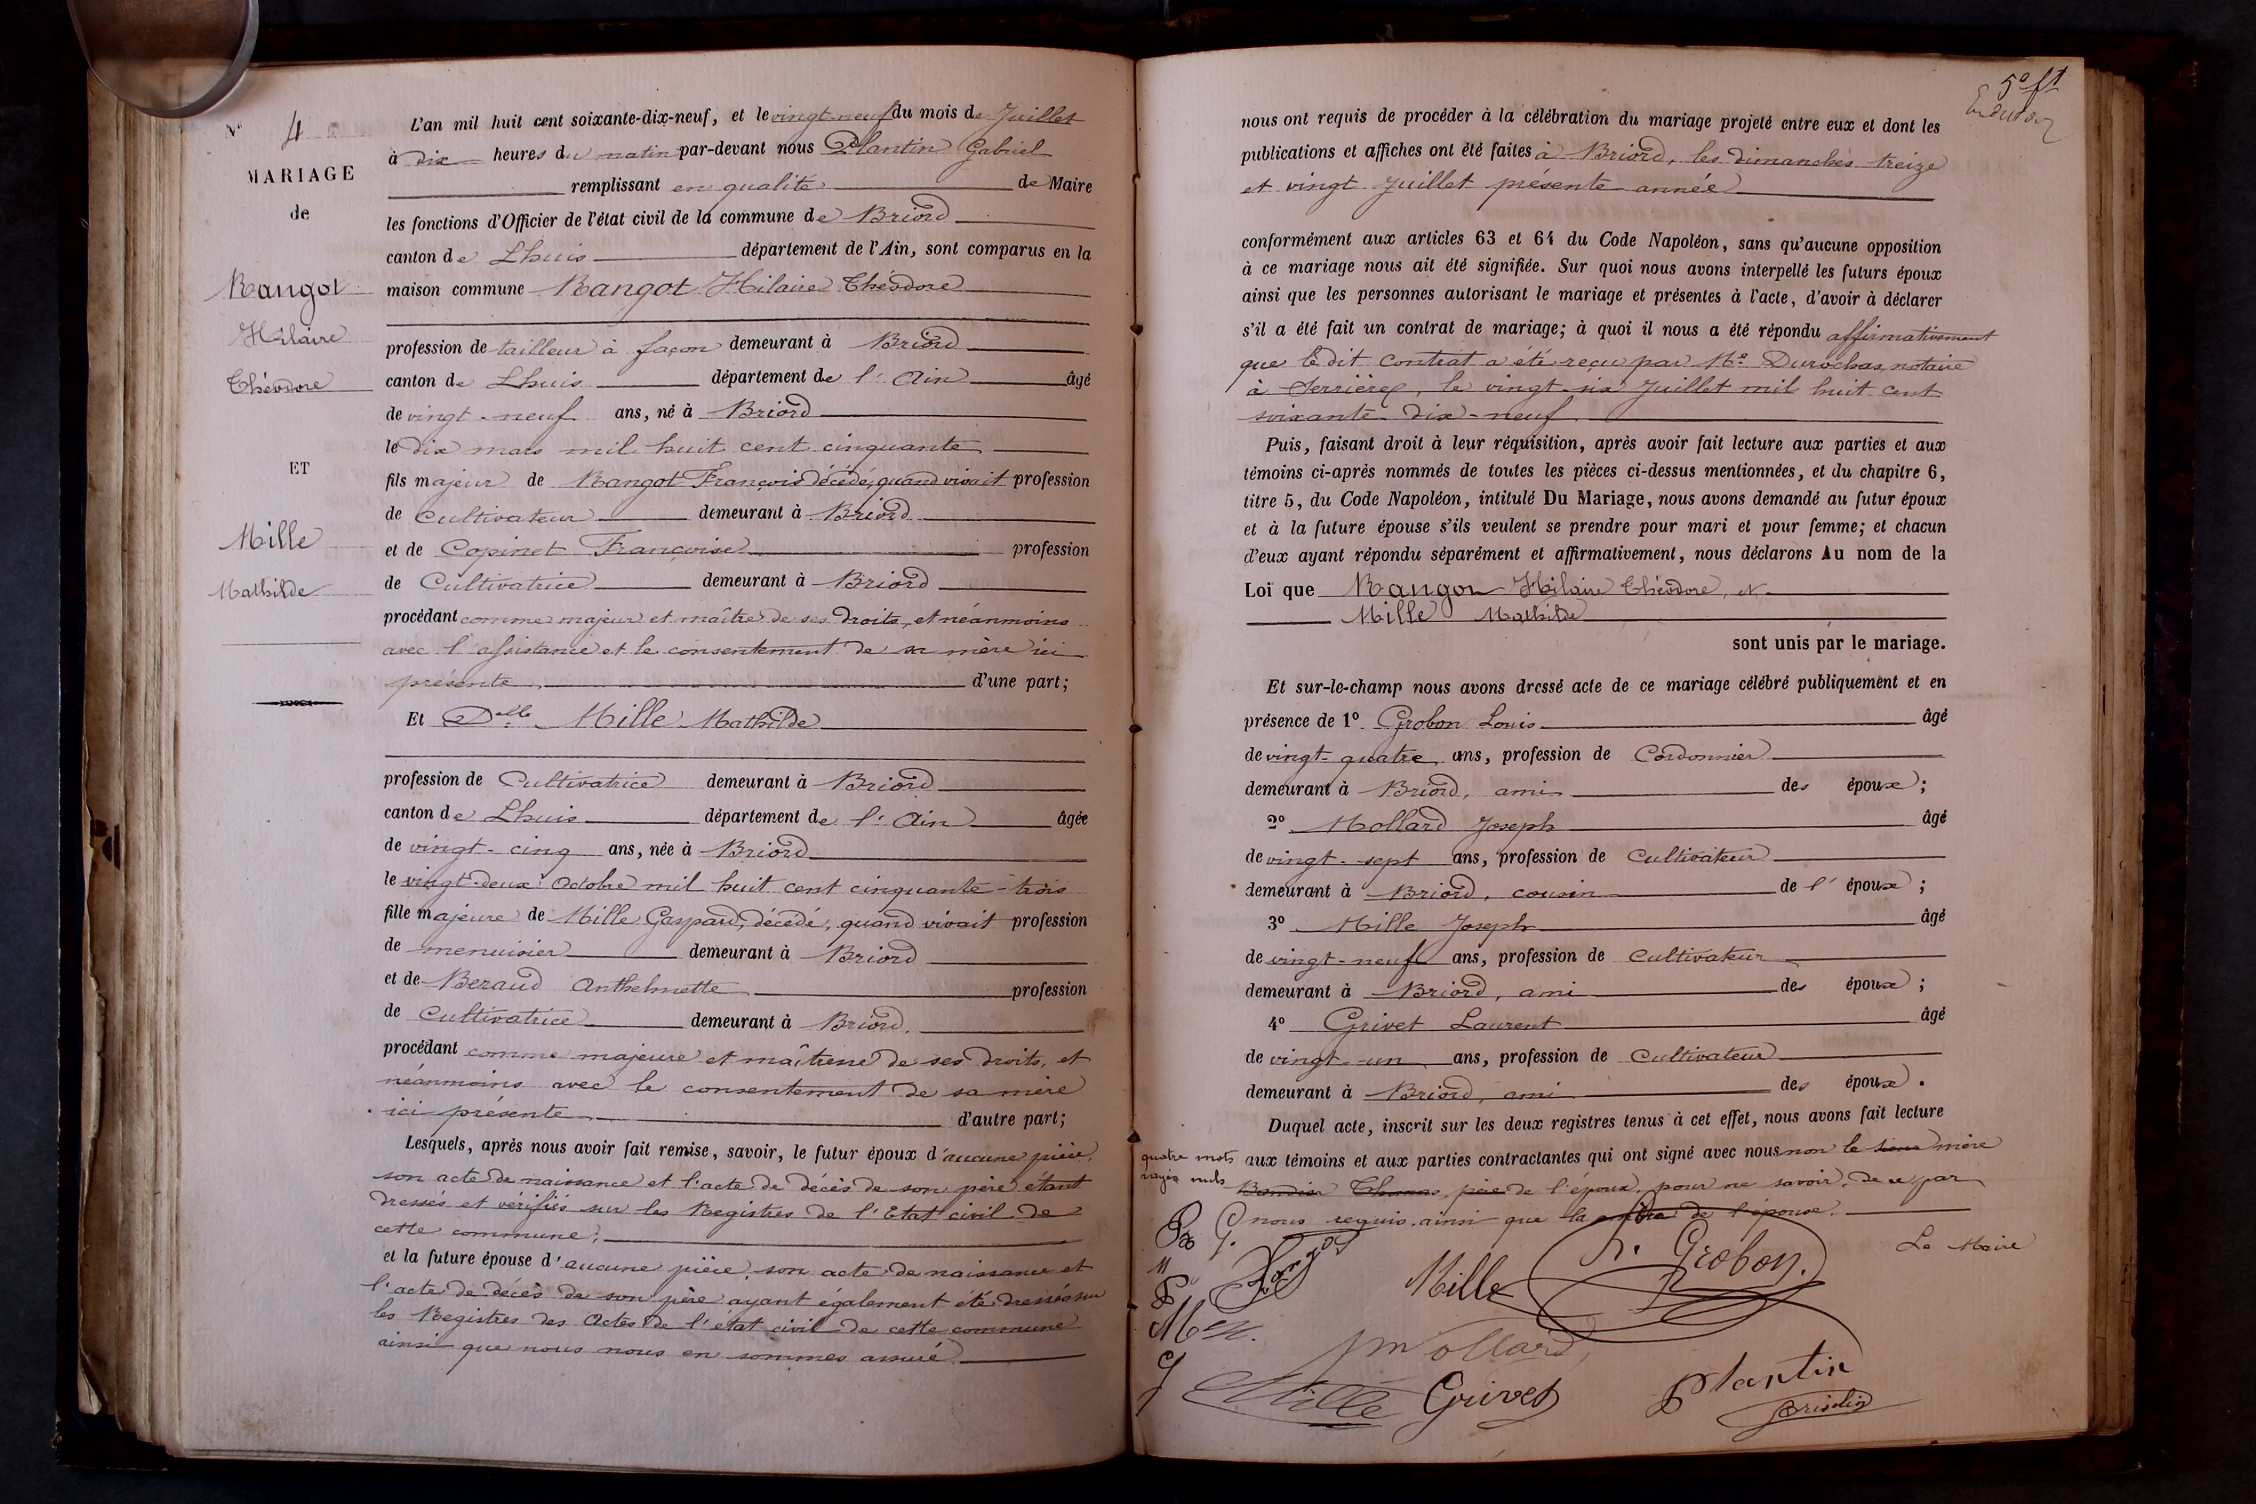 N° 4
MARIAGE
de
Rangot
Hilaire
Théodore
ET
Mille
Mathilde
L'an mil huit cent soixante-dix-neuf, et le vingt-neuf du mois de Juillet
à dix heures du matin par-devant nous Plantin Gabriel
remplissant en qualité de Maire
les fonctions d'Officier de l'état civil de la commune de Briord
canton de Lhuis département de l'Ain, sont comparus en la
maison commune Rangot Hilaire Théodore
profession de tailleur à façon demeurant à Briord
canton de Lhuis département de l'Ain âgé
de vingt-neuf ans, né à Briord
le dix mars mil huit cent cinquante
fils majeur de Rangot François décédé, quand vivait profession
de Cultivateur demeurant à Briord
et de Copinet Françoise profession
de Cultivatrice demeurant à Briord
procédant comme majeur et maître de ses droits, et néanmoins
avec l'assistance et le consentement de sa mère ici
présente d'une part;
Et Delle Mille Mathilde
profession de Cultivatrice demeurant à Briord
canton de Lhuis département de l'Ain âgée
de vingt-cinq ans, née à Briord
le vingt-deux Octobre mil huit cent cinquante-trois
fille majeure de Mille Gaspard, décédé, quand vivait profession
de menuisier demeurant à Briord
et de Beraud Anthelmette profession
de Cultivatrice demeurant à Briord.
procédant comme majeure et maîtresse de ses droits, et
néanmoins avec le consentement de sa mère
ici présente d'autre part;
Lesquels, après nous avoir fait remise, savoir, le futur époux d'aucune pièce,
son acte de naissance et l'acte de décès de son père étant
dressés et vérifiés sur les Registres de l'Etat civil de
cette commune;
et la future épouse d'aucune pièce, son acte de naissance et
l'acte de décès de son père ayant également été dressés sur
les Registres des Actes de l'état civil de cette commune
ainsi que nous nous en sommes assuré
5e ft
nous ont requis de procéder à la célébration du mariage projeté entre eux et dont les
publications et affiches ont été faites à Briord, les dimanches treize
et vingt Juillet présente année
conformément aux articles 63 et 64 du Code Napoléon, sans qu'aucune opposition
à ce mariage nous ait été signifiée. Sur quoi nous avons interpellé les futurs époux
ainsi que les personnes autorisant le mariage et présentes à l'acte, d'avoir à déclarer
s'il a été fait un contrat de mariage; à quoi il nous a été répondu affirmativement
que le dit contrat a été reçu par Me Durochas, notaire
à Serrières, le vingt-six Juillet mil huit cent
soixante-dix-neuf
Puis, faisant droit à leur réquisition, après avoir fait lecture aux parties et aux
témoins ci-après nommés de toutes les pièces ci-dessus mentionnées, et du chapitre 6,
titre 5, du Code Napoléon, intitulé Du Mariage, nous avons demandé au futur époux
et à la future épouse s'ils veulent se prendre pour mari et pour femme; et chacun
d'eux ayant répondu séparément et affirmativement, nous déclarons Au nom de la
Loi que Rangot Hilaire Théodore, et
Mille Mathilde
sont unis par le mariage.
Et sur-le-champ nous avons dressé acte de ce mariage célébré publiquement et en
présence de 1° Grobon Louis âgé
de vingt-quatre ans, profession de Cordonnier
demeurant à Briord, ami des époux;
2° Mollard Joseph âgé
de vingt-sept ans, profession de Cultivateur
demeurant à Briord, cousin de l'époux;
3° Mille Joseph âgé
de vingt-neuf ans, profession de Cultivateur
demeurant à Briord, ami des époux;
4° Grivet Laurent âgé
de vingt-un ans, profession de Cultivateur
demeurant à Briord, ami des époux.
Duquel acte, inscrit sur les deux registres tenus à cet effet, nous avons fait lecture
aux témoins et aux parties contractantes qui ont signé avec nous non la mère
de l'époux, pour ne savoir, de ce par
nous requis, ainsi que la mère de l'épouse.
quatre mots
rayés nuls
Le Maire
Rangot
Mille
Grobon.
Mollard
Mille
Grivet
Plantin